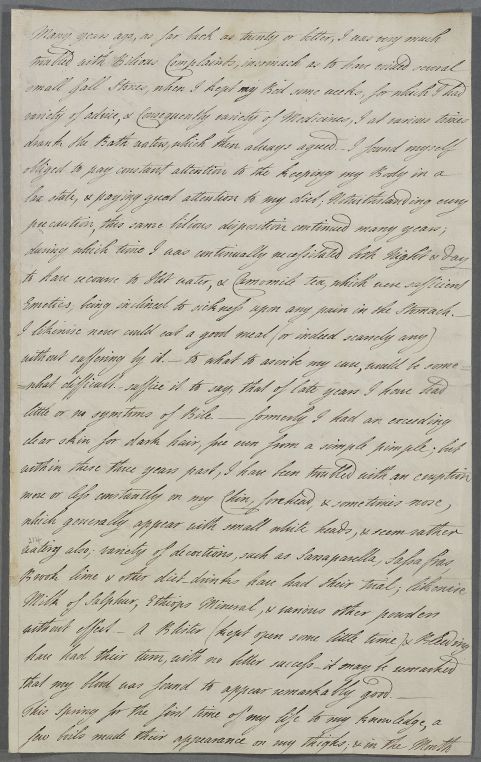 Many years ago, as far back as thirty or better, I was very much
troubled with Bilious Complaints, insomuch as to have voided several
small Gall Stones, when I kept my Bed some weeks, for which I had
variety of advice, & Consequently variety of Medicines; I at various times
drank the Bath water, which then always agreed – I found myself
obliged to pay constant attention to the keeping my Body in a
lax state, & paying great attention to my diet; Notwithstanding every
precaution, this same bilious disposition continued many years;
during which time I was continually necessitated both Night & day
to have recourse to Hot water, & Camomile tea, which were sufficient
Emetics, being inclined to sickness upon any pain in the Stomach. –
I likewise never could eat a good meal (or indeed scarcely any)
without suffering by it. – to what to ascribe my cure, would be some=
=what difficult – suffice it to say, that of late years I have had
little or no symtoms of Bile. — formerly I had an exceeding
clear skin for dark hair, free even from a simple pimple; but
within these three years past, I have been troubled with an eruption
more or less constantly on my Chin, forehead, & sometimes nose,
which generally appear with small white heads, & seem rather
214
eating also; variety of decoctions, such as Sarsaparella, Sassafras
Brook lime & other diet-drinks have had their trial; likewise
Milk of Sulphur, Ethiops Mineral, & various other powders
without effect – A Blister (kept open some little time) & Bleeding
have had their turn, with no better success – it may be remarked
that my blood was found to appear remarkably good –
this Spring for the first time of my life to my knowledge, a
few boils made their appearance on my thighs; & in the Month